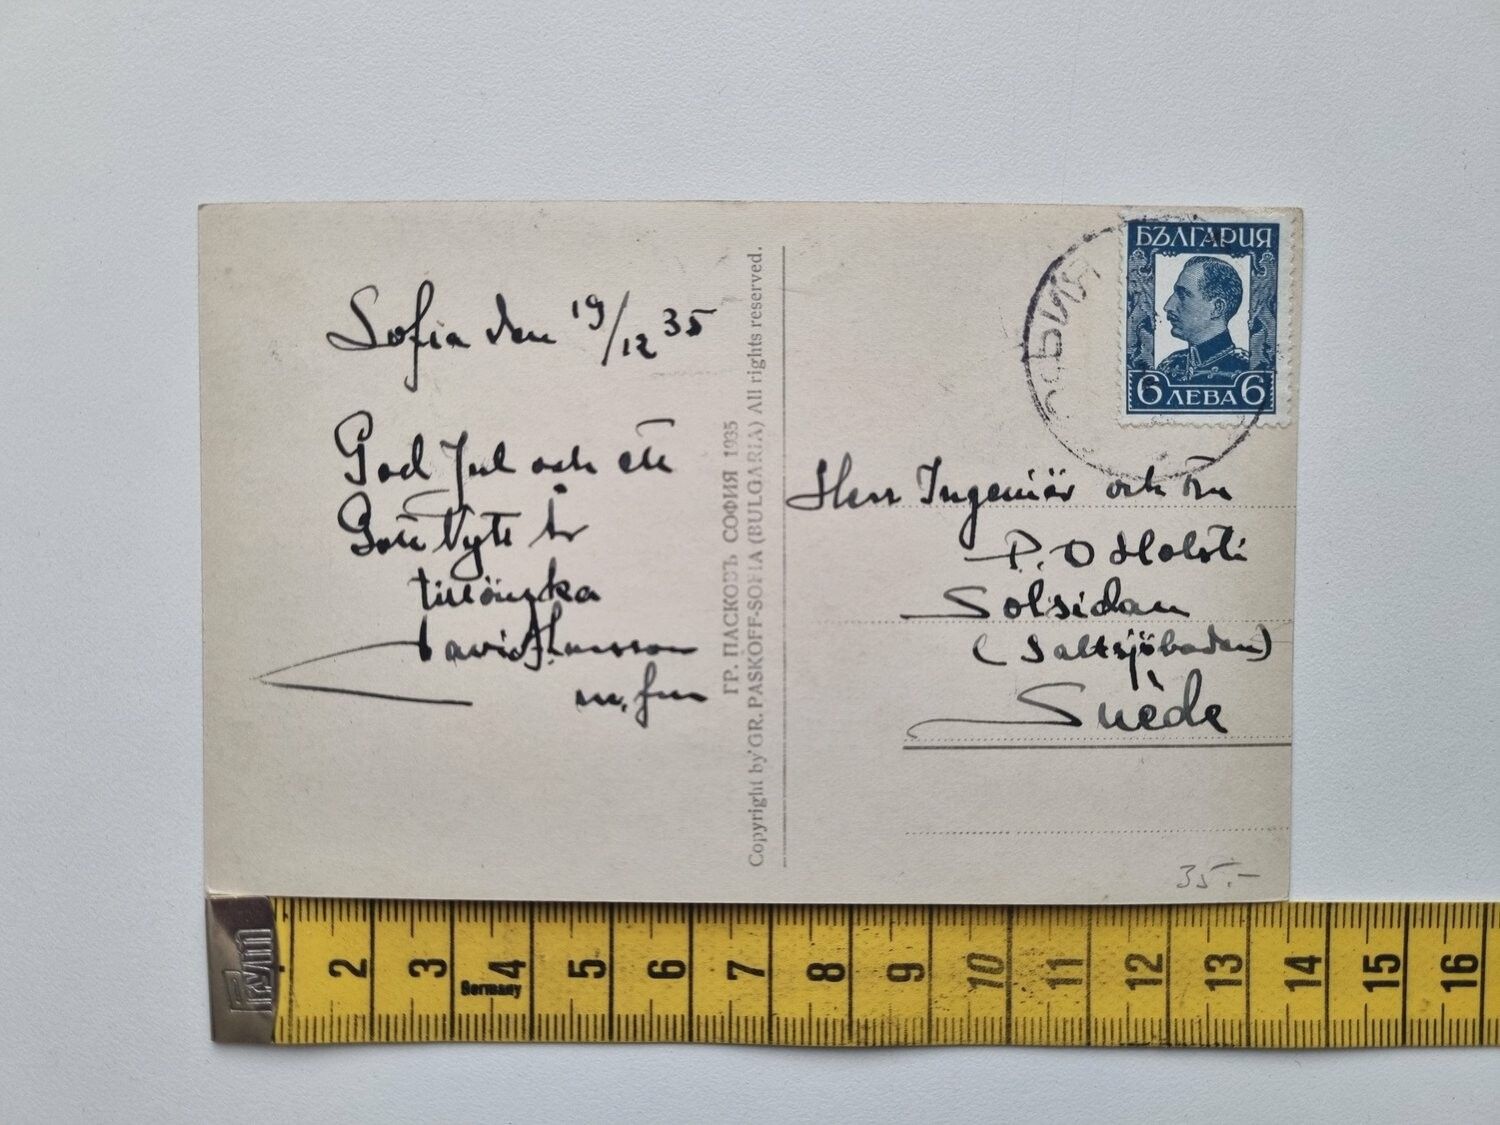 Sofia den 19/12 35
God Jul och ett
Gott Nytt år
tillönska
David
m. fru
ГР. ПАСКОВЪ СОФИЯ 1935
Copyright by GR. PASKOFF-SOFIA (BULGARIA) All rights reserved.
БЪЛГАРИЯ
6 ЛЕВА 6
СОФИЯ
Herr Ingeniör och Fru
P. O Holsti
Solsidan
(Saltsjöbaden)
Suède
35.-
2 3 4 5 6 7 8 9 10 11 12 13 14 15 16
Germany